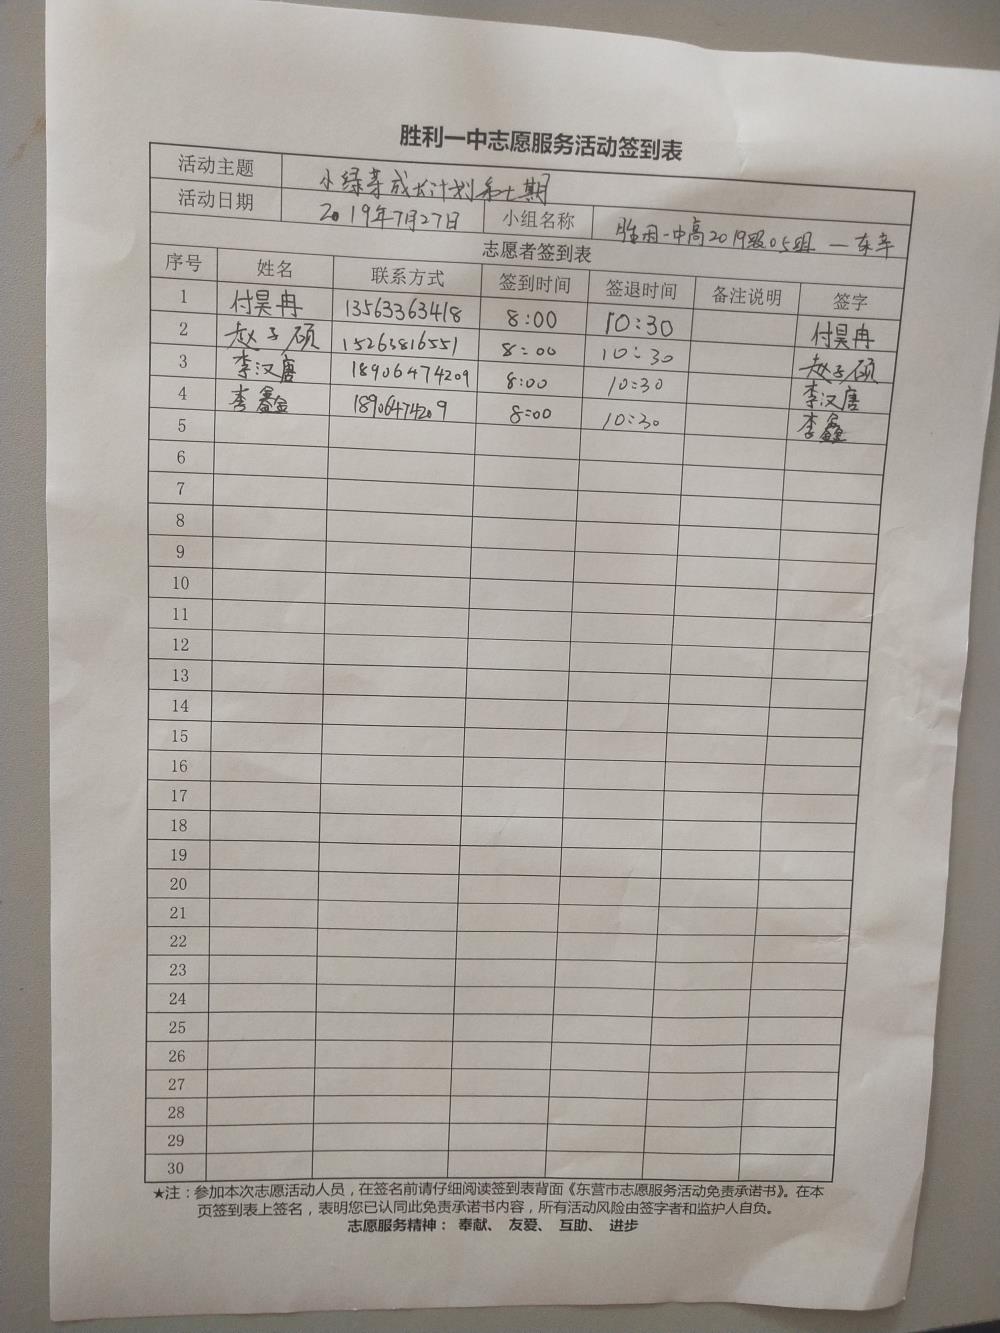 胜利一中志愿服务活动签到表
活动主题 小绿芽成长计划第七期
活动日期 2019年7月27日 小组名称 胜利一中高2019级05组 — 东辛
志愿者签到表
序号 姓名 联系方式 签到时间 签退时间 备注说明 签字
1 付昊冉 13563363418 8:00 10:30 付昊冉
2 赵子硕 15263816551 8:00 10:30 赵子硕
3 李汉唐 18906474209 8:00 10:30 李汉唐
4 李鑫 18906474209 8:00 10:30 李鑫
5
6
7
8
9
10
11
12
13
14
15
16
17
18
19
20
21
22
23
24
25
26
27
28
29
30
★注：参加本次志愿活动人员，在签名前请仔细阅读签到表背面《东营市志愿服务活动免责承诺书》。在本
页签到表上签名，表明您已认同此免责承诺书内容，所有活动风险由签字者和监护人自负。
志愿服务精神： 奉献、 友爱、 互助、 进步